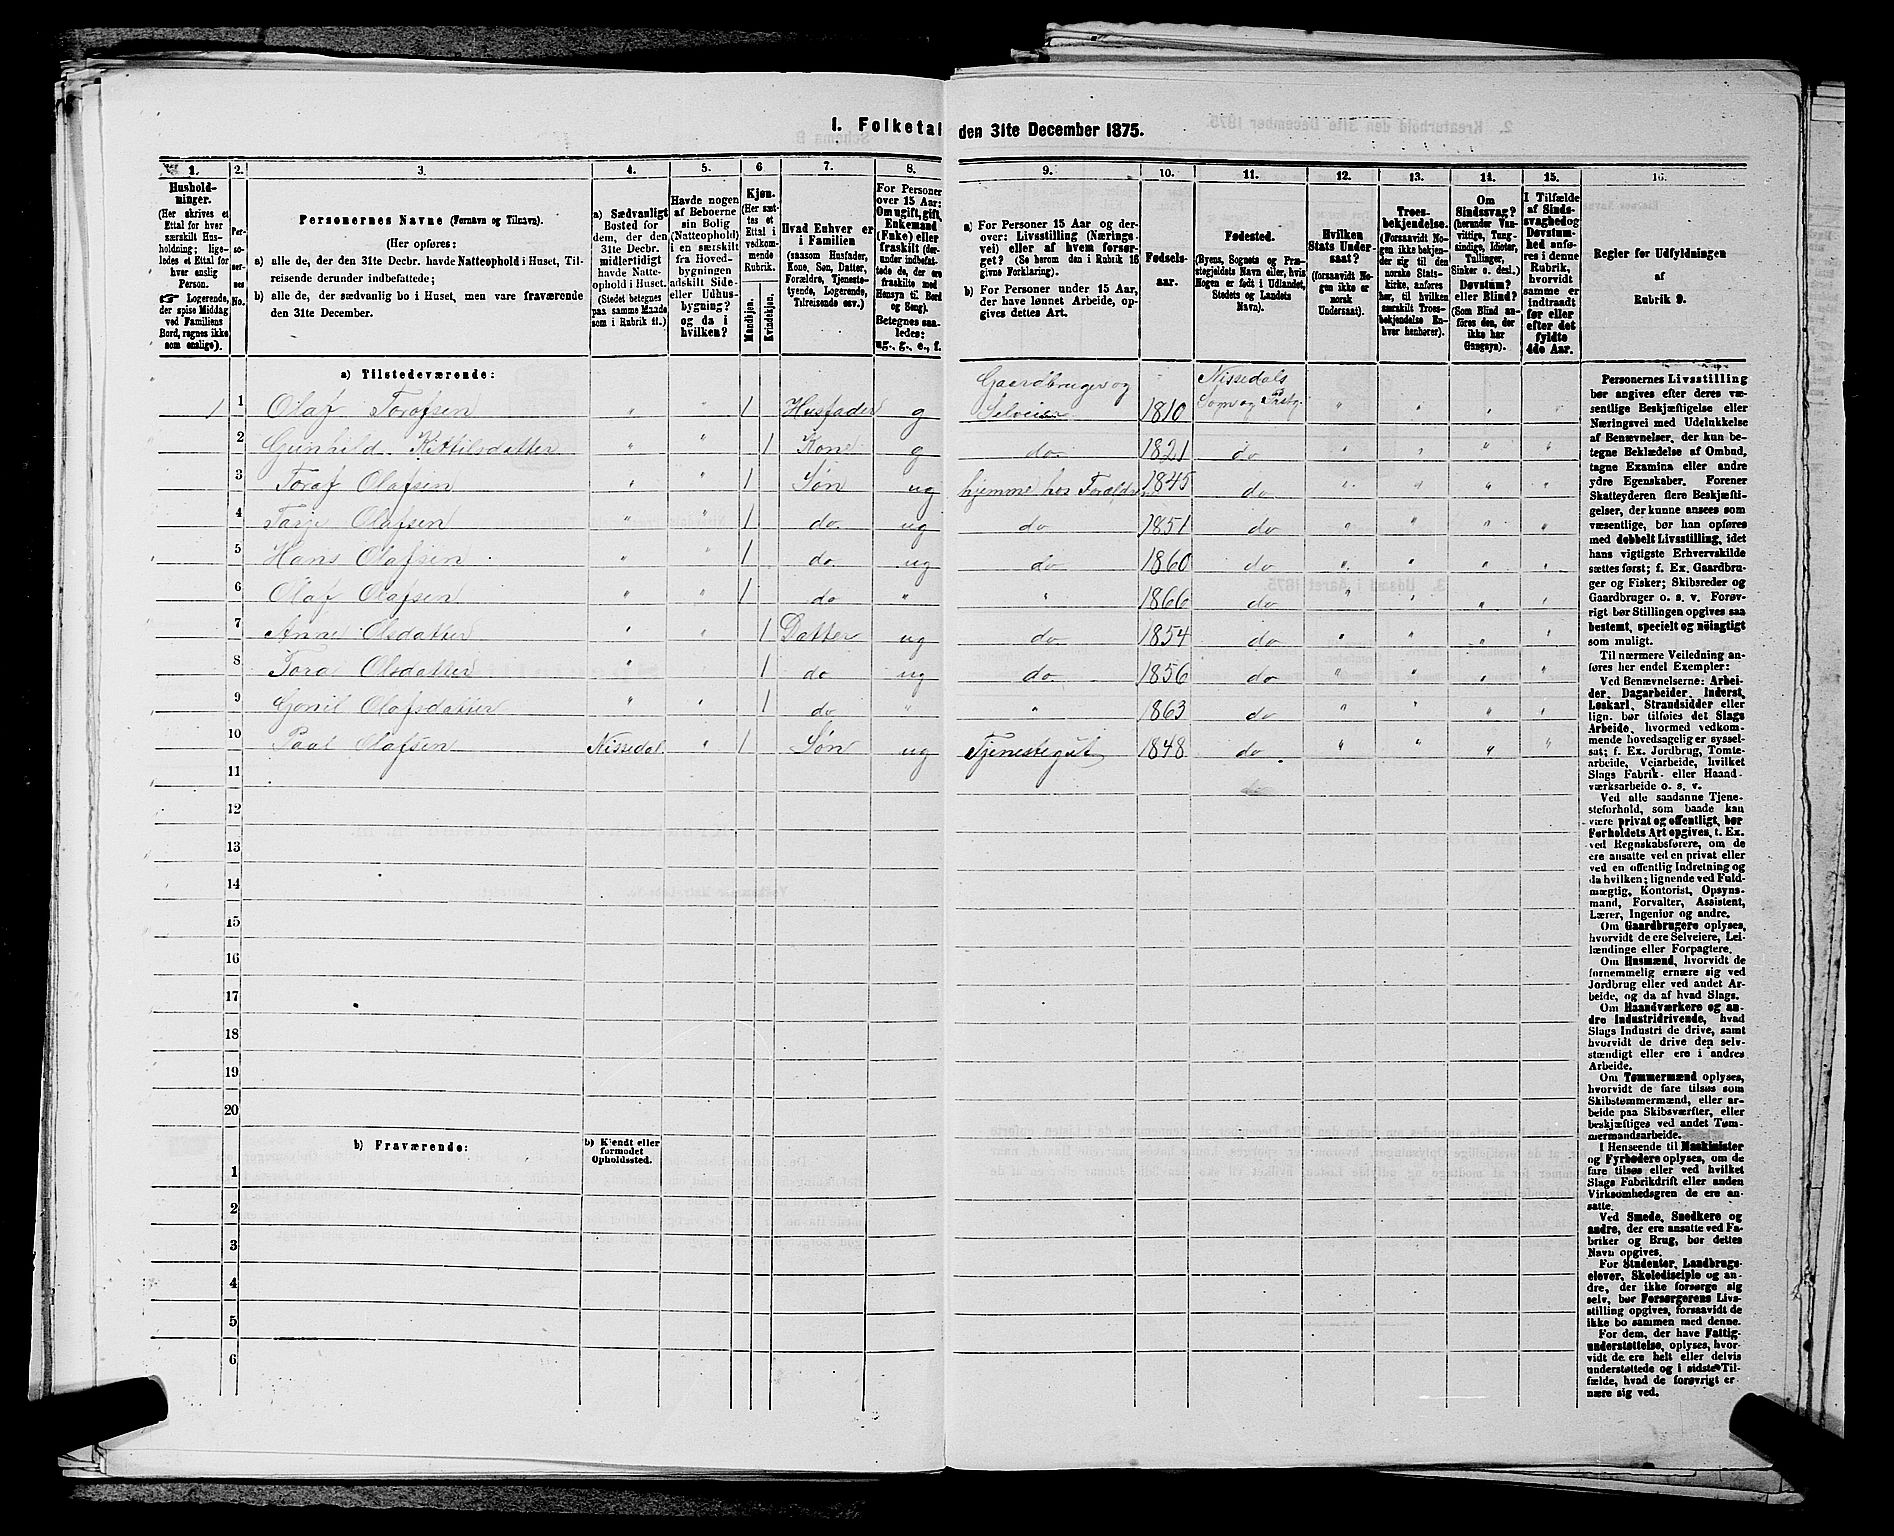 1. Folketal den 31te December 1875.
1. 2. 3. 4. 5. 6 7. 8. 9. 10. 11. 12. 13. 14. 15. 16.
Hushold-
ninger.
(Her skrives et
Ettal for hver
særskilt Hus-
holdning; lige-
ledes et Ettal for
hver enslig
Person.
☞ Logerende,
der spise Middag
ved Familiens
Bord, regnes ikke
som enslige).
Per-
so-
ner-
nes
No.
Personernes Navne (Fornavn og Tilnavn).
(Her opføres:
a) alle de, der den 31te Decbr. havde Natteophold i Huset, Til-
reisende derunder indbefattede;
b) alle de, der sædvanlig bo i Huset, men vare fraværende
den 31te December.
a) Sædvanligt
Bosted for
dem, der den
31te Decbr.
midlertidigt
havde Natte-
ophold i Huset.
(Stedet betegnes
paa samme Maade
som i Rubrik 11.)
Havde nogen
af Beboerne
sin Bolig
(Natteophold)
i en særskilt
fra Hoved-
bygningen
adskilt Side-
eller Udhus-
bygning?
og da i
hvilken?
Kjøn.
(Her sæt-
tes et
Ettal i
vedkom-
mende
Rubrik.
Mandkjøn.
Kvindekjøn.
Hvad Enhver er
i Familien
(saasom Husfader,
Kone, Søn, Datter,
Forældre, Tjeneste-
tyende, Logerende,
Tilreisende osv.)
For Personer
over 15 Aar:
Om ugift, gift,
Enkemand
(Enke) eller
fraskilt (der-
under indbefat-
tede de, der ere
fraskilte med
Hensyn til Bord
og Seng).
Betegnes saa-
ledes:
ug., g., e., f.
a) For Personer 15 Aar og der-
over: Livsstilling (Nærings-
vei) eller af hvem forsør-
get? (Se herom den i Rubrik 16
givne Forklaring).
b) For Personer under 15 Aar,
der have lønnet Arbeide, op-
gives dettes Art.
Fødsels-
aar.
Fødested.
(Byens, Sognets og Præ-
stegjeldets Navn eller, hvis
Nogen er født i Udlandet,
Stedets og Landets
Navn).
Hvilken
Stats Under-
saat?
(forsaavidt No-
gen ikke er
norsk
Undersaat).
Troes-
bekjendelse.
(Forsaavidt No-
gen ikke bekjen-
der sig til den
norske Stats-
kirke, anføres
her, til hvilken
særskilt Troes-
bekjendelse En-
hver henhører).
Om
Sindssvag?
(herunder Van-
vittige, Tung-
sindige, Idioter,
Tullinger,
Sinker o. desl.)
Døvstum?
eller Blind?
(Som Blind an-
føres den, der
ikke har
Gangsyn).
I Tilfælde
af Sinds-
svaghed og
Døvstum-
hed anfø-
res i denne
Rubrik,
hvorvidt
samme er
indtraadt
før eller
efter det
fyldte
4de Aar.
Regler for Udfyldningen
af
Rubrik 9.
a) Tilstedeværende:
1 1 Olaf Torafsen " " 1 Husfader g Gaardbruger og Selveier 1810 Nissedals Sogn og Prstg. " " " "
2 Gunhild Kittilsdatter " " 1 Kone g do 1821 do " " " "
3 Toraf Olafsen " " 1 Søn ug hjemme hos Forældr. 1845 do " " " "
4 Tarje Olafsen " " 1 do ug do 1851 do " " " "
5 Hans Olafsen " " 1 do ug do 1860 do " " " "
6 Olaf Olafsen " " 1 do " " 1866 do " " " "
7 Anne Olsdatter " " 1 Datter ug do 1854 do " " " "
8 Tora Olsdatter " 1 do ug do 1856 do " " " "
9 Gonil Olafsdatter " " 1 do " " 1863 do " " " "
10 Paal Olafsen Nissedal " 1 Søn ug Tjenestegut 1848 do " " " "
11
12
13
14
15
16
17
18
19
20
b) Fraværende:
b) Kjendt eller
formodet
Opholdssted.
1
2
3
4
5
6
Personernes Livsstilling
bør angives efter deres væ-
sentlige Beskjæftigelse eller
Næringsvei med Udelukkelse
af Benævnelser, der kun be-
tegne Beklædelse af Ombud,
tagne Examina eller andre
ydre Egenskaber. Forener
Skatteyderen flere Beskjæfti-
gelser, der kunne ansees som
væsentlige, bør han opføres
med dobbelt Livsstilling, idet
hans vigtigste Erhvervskilde
sættes først; f. Ex. Gaardbru-
ger og Fisker; Skibsreder og
Gaardbruger o. s. v. Forøv-
rigt bør Stillingen opgives saa
bestemt, specielt og nøiagtigt
som muligt.
Til nærmere Veiledning an-
føres her endel Exempler:
Ved Benævnelserne: Arbei-
der, Dagarbeider, Inderst,
Løskarl, Strandsidder eller
lign. bør tilføies det Slags
Arbeide, hvormed vedkom-
mende hovedsagelig er syssel-
sat; f. Ex. Jordbrug, Tomte-
arbeide, Veiarbeide, hvilket
Slags Fabrik- eller Haand-
værksarbeide o. s. v.
Ved alle saadanne Tjene-
steforhold, som baade kan
være privat og offentligt, bør
Forholdets Art opgives, t. Ex.
ved Regnskabsførere, om de
ere ansatte ved en privat eller
ved en offentlig Indretning og
da hvilken; lignende ved Fuld-
mægtig, Kontorist, Opsyns-
mand, Forvalter, Assistent,
Lærer, Ingeniør og andre.
Om Gaardbrugere oplyses,
hvorvidt de ere Selveiere, Lei-
lændinge eller Forpagtere.
Om Husmænd, hvorvidt de
fornemmelig ernære sig ved
Jordbrug eller ved andet Ar-
beide, og da af hvad Slags.
Om Haandværkere og an-
dre Industridrivende, hvad
Slags Industri de drive, samt
hvorvidt de drive den selv-
stændigt eller ere i andres
Arbeide.
Om Tømmermænd oplyses,
hvorvidt de fare tilsøs som
Skibstømmermænd, eller ar-
beide paa Skibsværfter, eller
beskjæftiges ved andet Tøm-
mermandsarbeide.
I Henseende til Maskinister
og Fyrbødere oplyses, om de
fare tilsøs eller ved hvilket
Slags Fabrikdrift eller anden
Virksomhedsgren de ere an-
satte.
Ved Smede, Snedkere og
andre, der ere ansatte ved Fa-
briker og Brug, bør dettes
Navn opgives.
For Studenter, Landbrugs-
elever, Skoledisciple og an-
dre, der ikke forsørge sig
selv, bør Forsørgerens Livs-
stilling opgives, forsaavidt de
ikke bo sammen med denne.
For dem, der have Fattig-
understøttelse, oplyses, hvor-
vidt de ere helt eller delvis
understøttede og i sidste Til-
fælde, hvad de forøvrigt er-
nære sig ved.